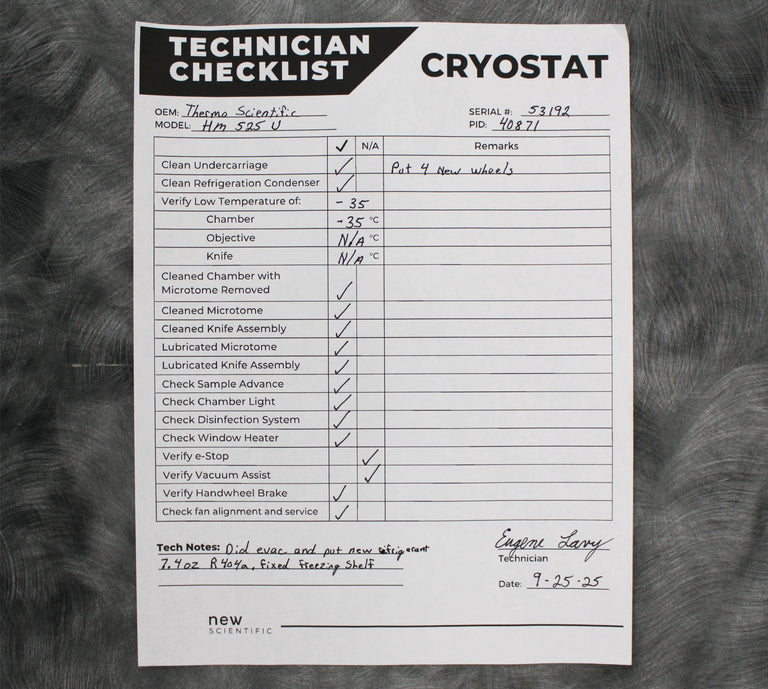 TECHNICIAN
CHECKLIST
CRYOSTAT
OEM: Thermo Scientific
SERIAL #: 53192
MODEL: Hm 525 U
PID: 40871
✓ N/A Remarks
Clean Undercarriage ✓ Put 4 New wheels
Clean Refrigeration Condenser ✓
Verify Low Temperature of: -35
Chamber -35 °C
Objective N/A °C
Knife N/A °C
Cleaned Chamber with
Microtome Removed ✓
Cleaned Microtome ✓
Cleaned Knife Assembly ✓
Lubricated Microtome ✓
Lubricated Knife Assembly ✓
Check Sample Advance ✓
Check Chamber Light ✓
Check Disinfection System ✓
Check Window Heater ✓
Verify e-Stop ✓
Verify Vacuum Assist ✓
Verify Handwheel Brake ✓
Check fan alignment and service ✓
Tech Notes: Did evac and put new refrigerant
7.4oz R404a, fixed freezing shelf
Eugene Lavy
Technician
Date: 9-25-25
new
SCIENTIFIC